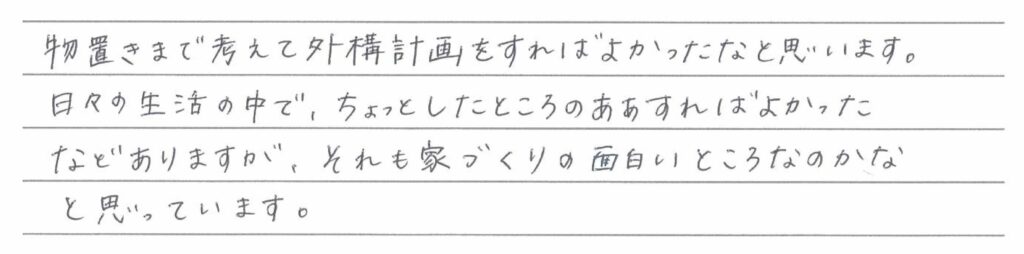 物置きまで考えて外構計画をすればよかったなと思います。
日々の生活の中で、ちょっとしたところのああすればよかった
などありますが、それも家づくりの面白いところなのかな
と思っています。